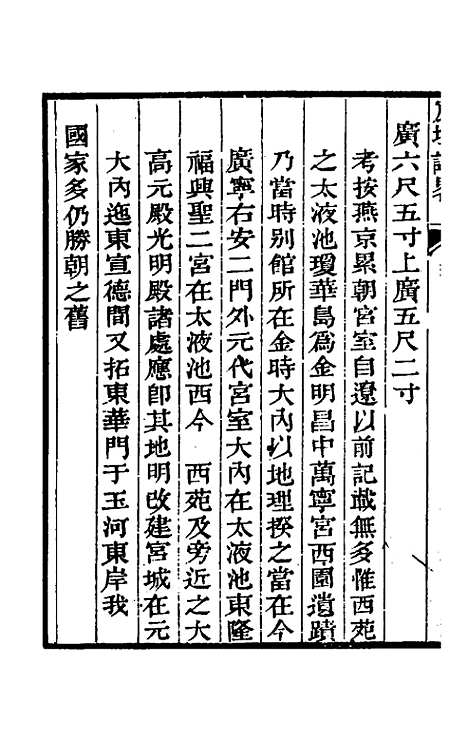 廣六尺五寸上廣五尺二寸
考按燕京累朝宮室自遼以前記載無多惟西苑
之太液池瓊華島爲金明昌中萬寧宮西園遺蹟
乃當時别館所在金時大內以地理揆之當在今
廣寧右安二門外元代宮室大內在太液池東隆
福興聖二宮在太液池西今　西苑及旁近之大
高元殿光明殿諸處應卽其地明改建宮城在元
大內迤東宣德間又拓東華門于玉河東岸我
國家多仍勝朝之舊